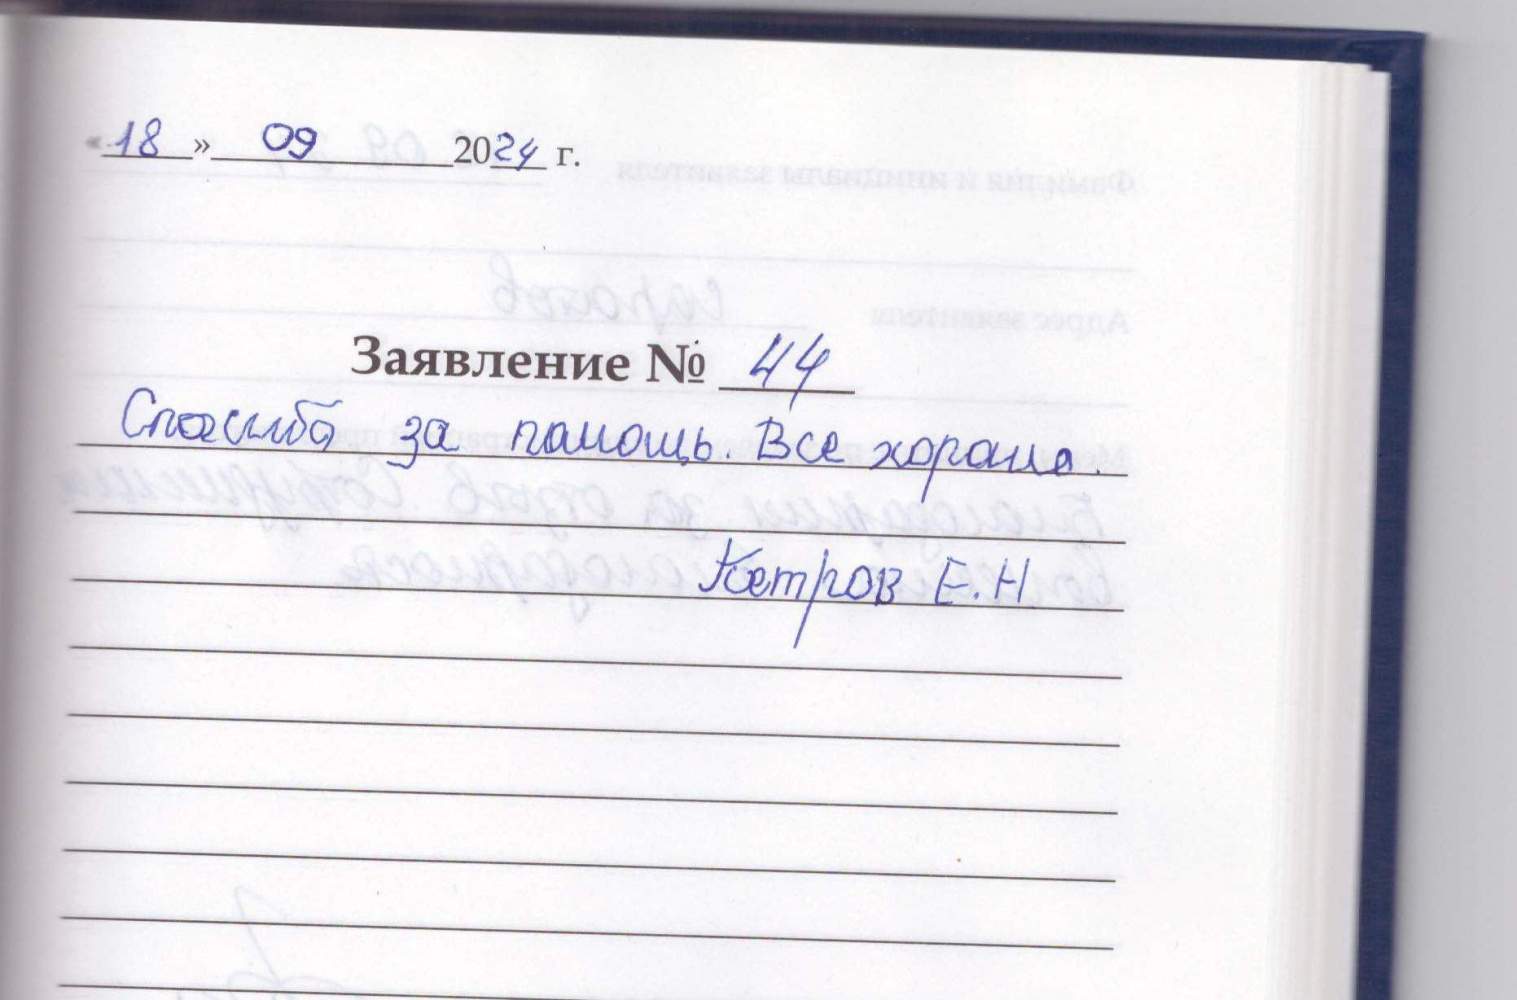 «18» 09 2024 г.
Заявление № 44
Спасибо за помощь. Все хорошо.
Кетров Е.Н